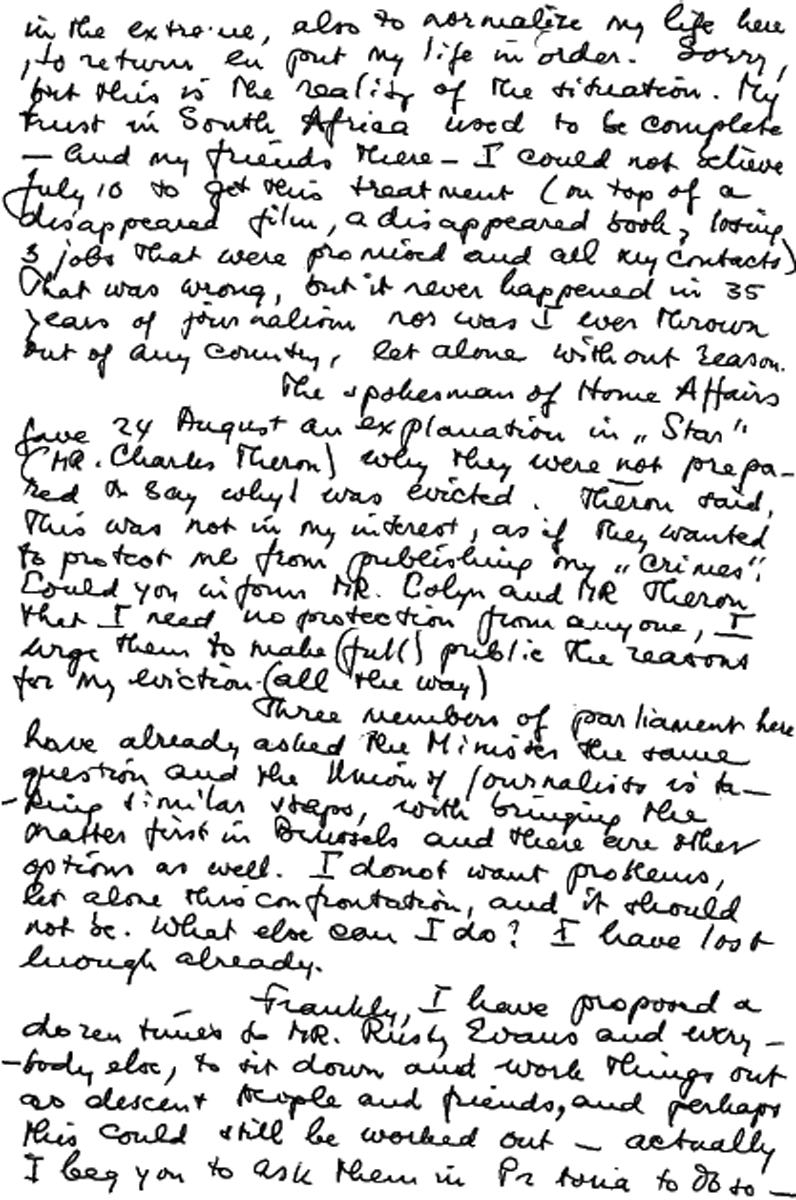 in the extreme, also to normalize my life here
, to return en put my life in order. Sorry,
but this is the reality of the situation. My
trust in South Africa used to be complete
— and my friends there — I could not believe
July 10 to get this treatment (on top of a
disappeared film, a disappeared book, losing
3 jobs that were promised and all my contacts)
That was wrong, but it never happened in 35
years of journalism nor was I ever thrown
out of any country, let alone without reason.
The spokesman of Home Affairs
gave 24 August an explanation in „Star"
(MR. Charles Theron) why they were not prepa-
red to say why I was evicted. Theron said,
this was not in my interest, as if they wanted
to protect me from publishing my „crimes".
Could you inform MR. Colyn and MR Theron
that I need no protection from anyone, I
urge them to make (full) public the reasons
for my eviction. (all the way)
Three members of parliament here
have already asked the Minister the same
question and the Union of Journalists is ta-
-king similar steps, with bringing the
matter first in Brussels and there are other
options as well. I donot want problems,
let alone this confrontation, and it should
not be. What else can I do? I have lost
enough already.
Frankly, I have proposed a
dozen times to MR. Rusty Evans and every-
-body else, to sit down and work things out
as descent people and friends, and perhaps
this could still be worked out — actually
I beg you to ask them in Pretoria to do so —